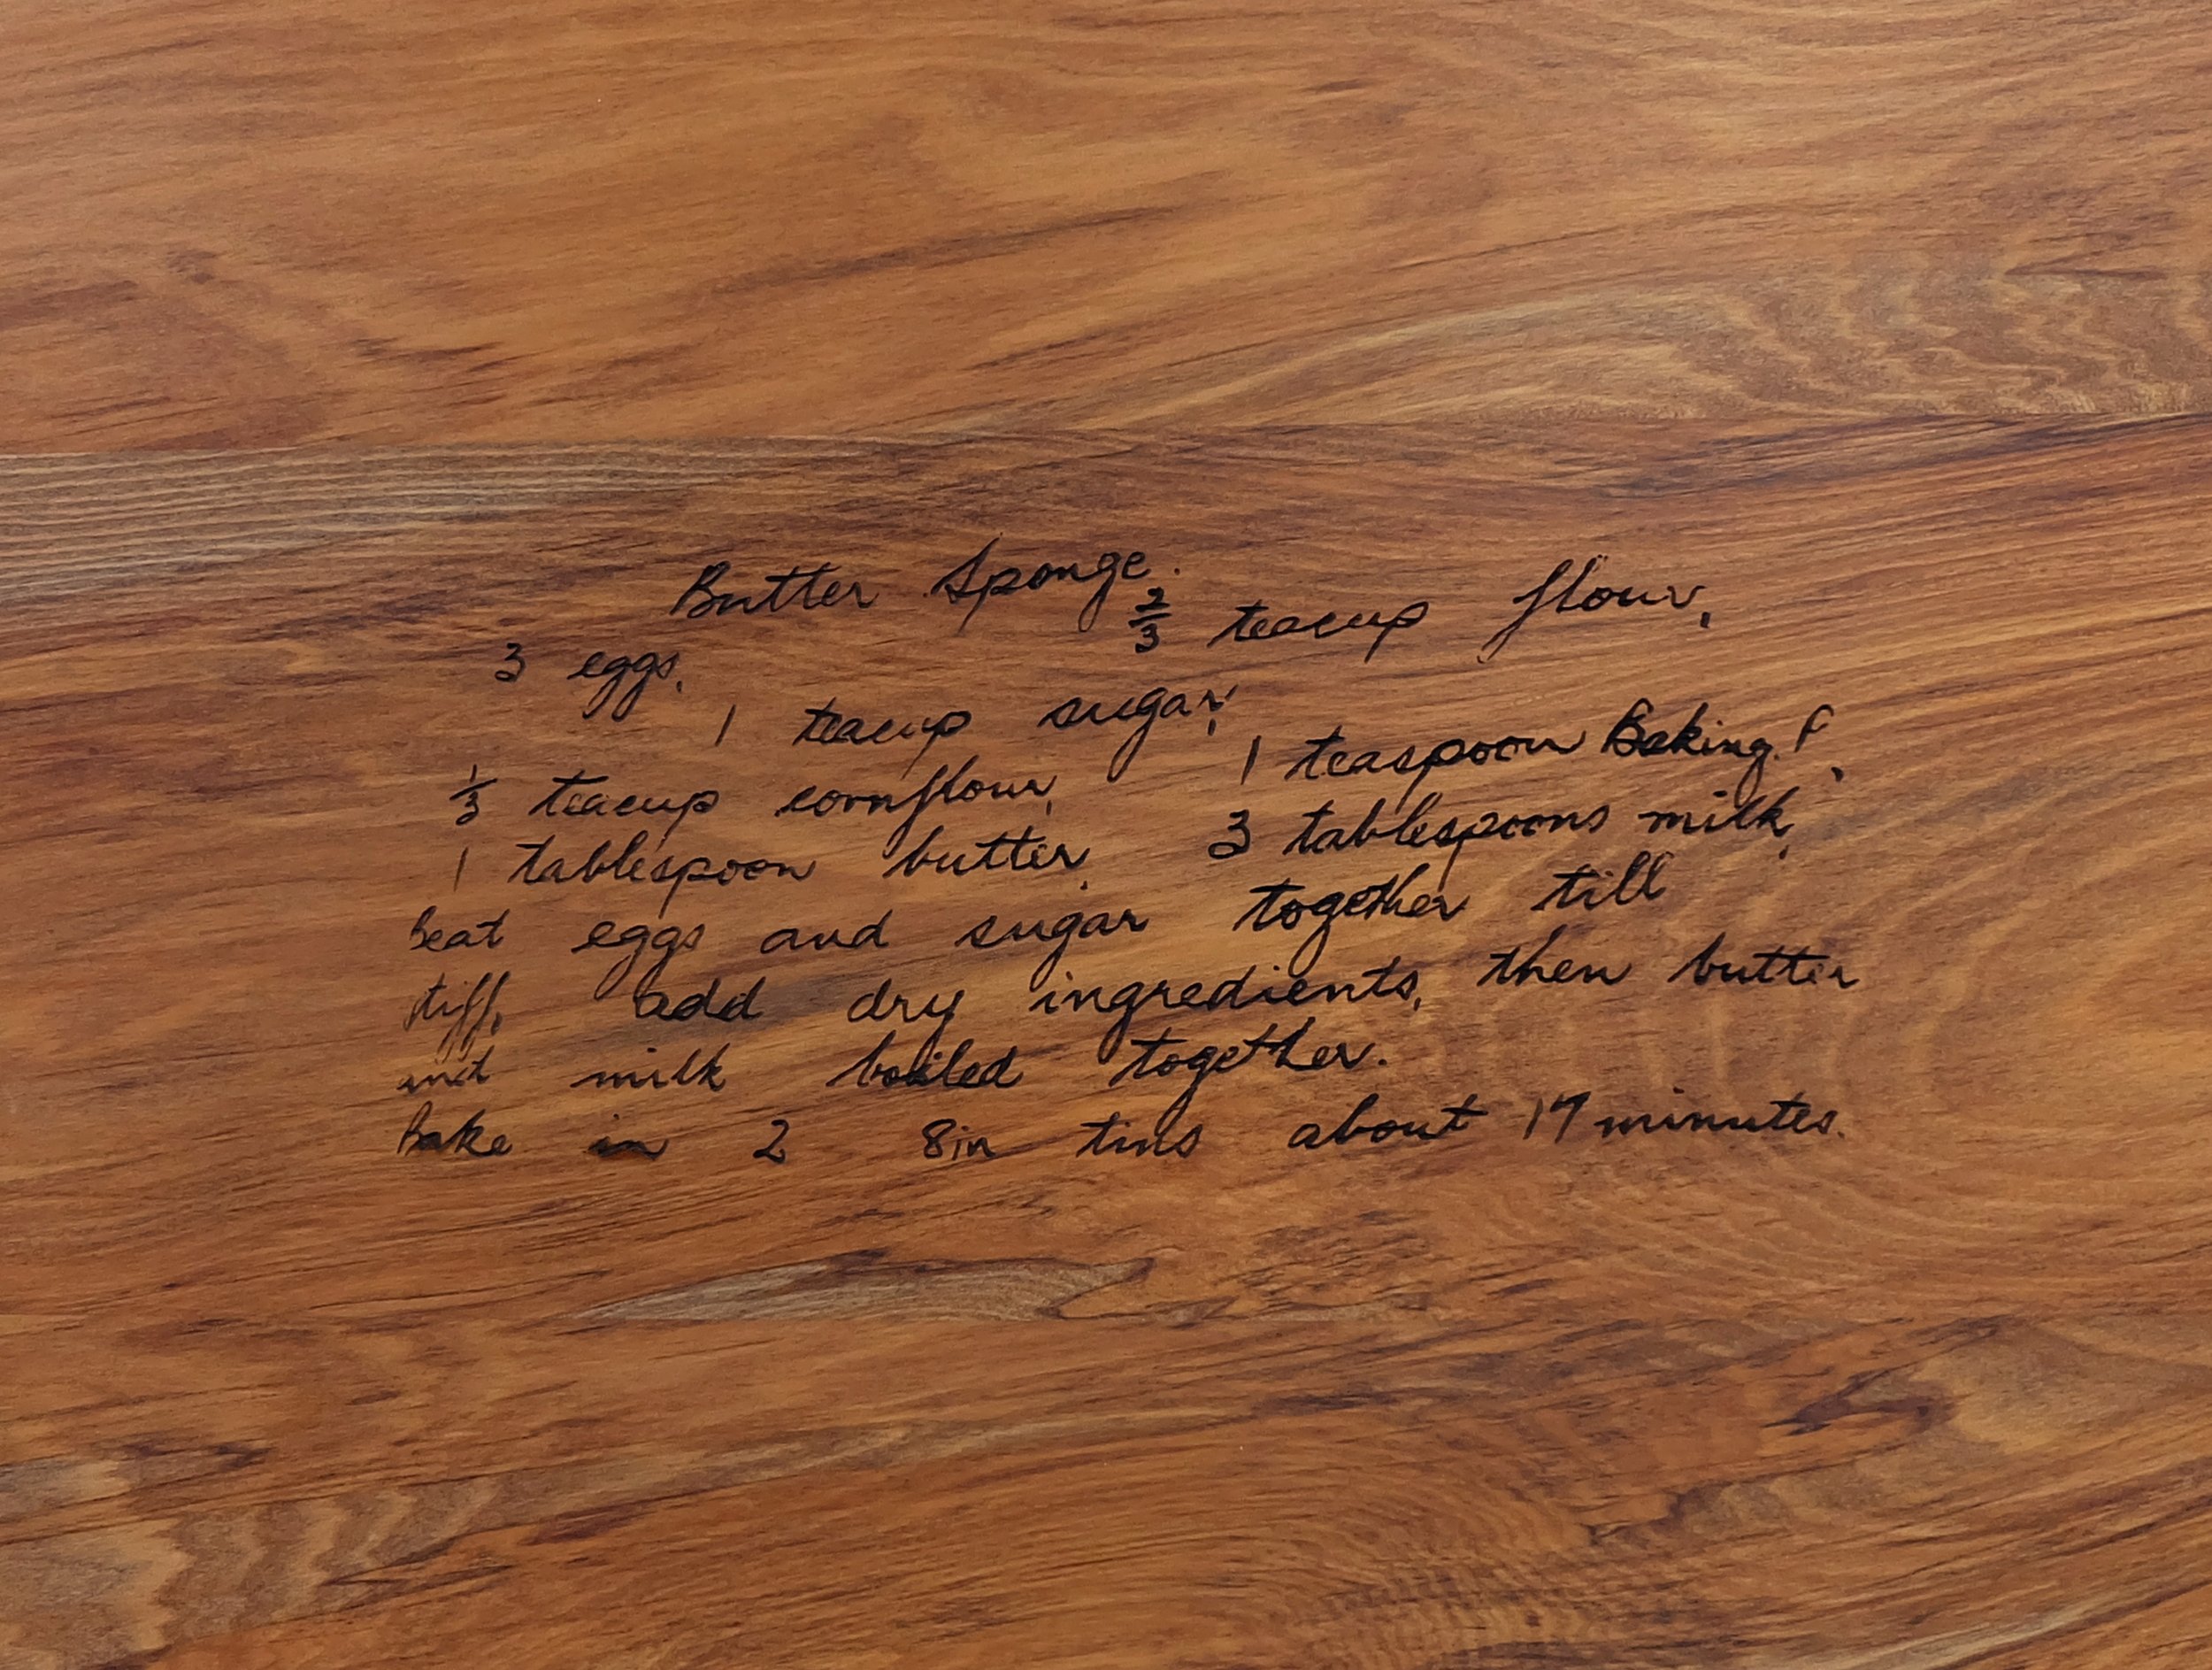 Butter Sponge.
3 eggs, 2/3 teacup flour,
1 teacup sugar,
1/3 teacup cornflour, 1 teaspoon Baking P,
1 tablespoon butter, 3 tablespoons milk,
beat eggs and sugar together till
stiff, add dry ingredients, then butter
and milk boiled together.
Bake in 2 8in tins about minutes.